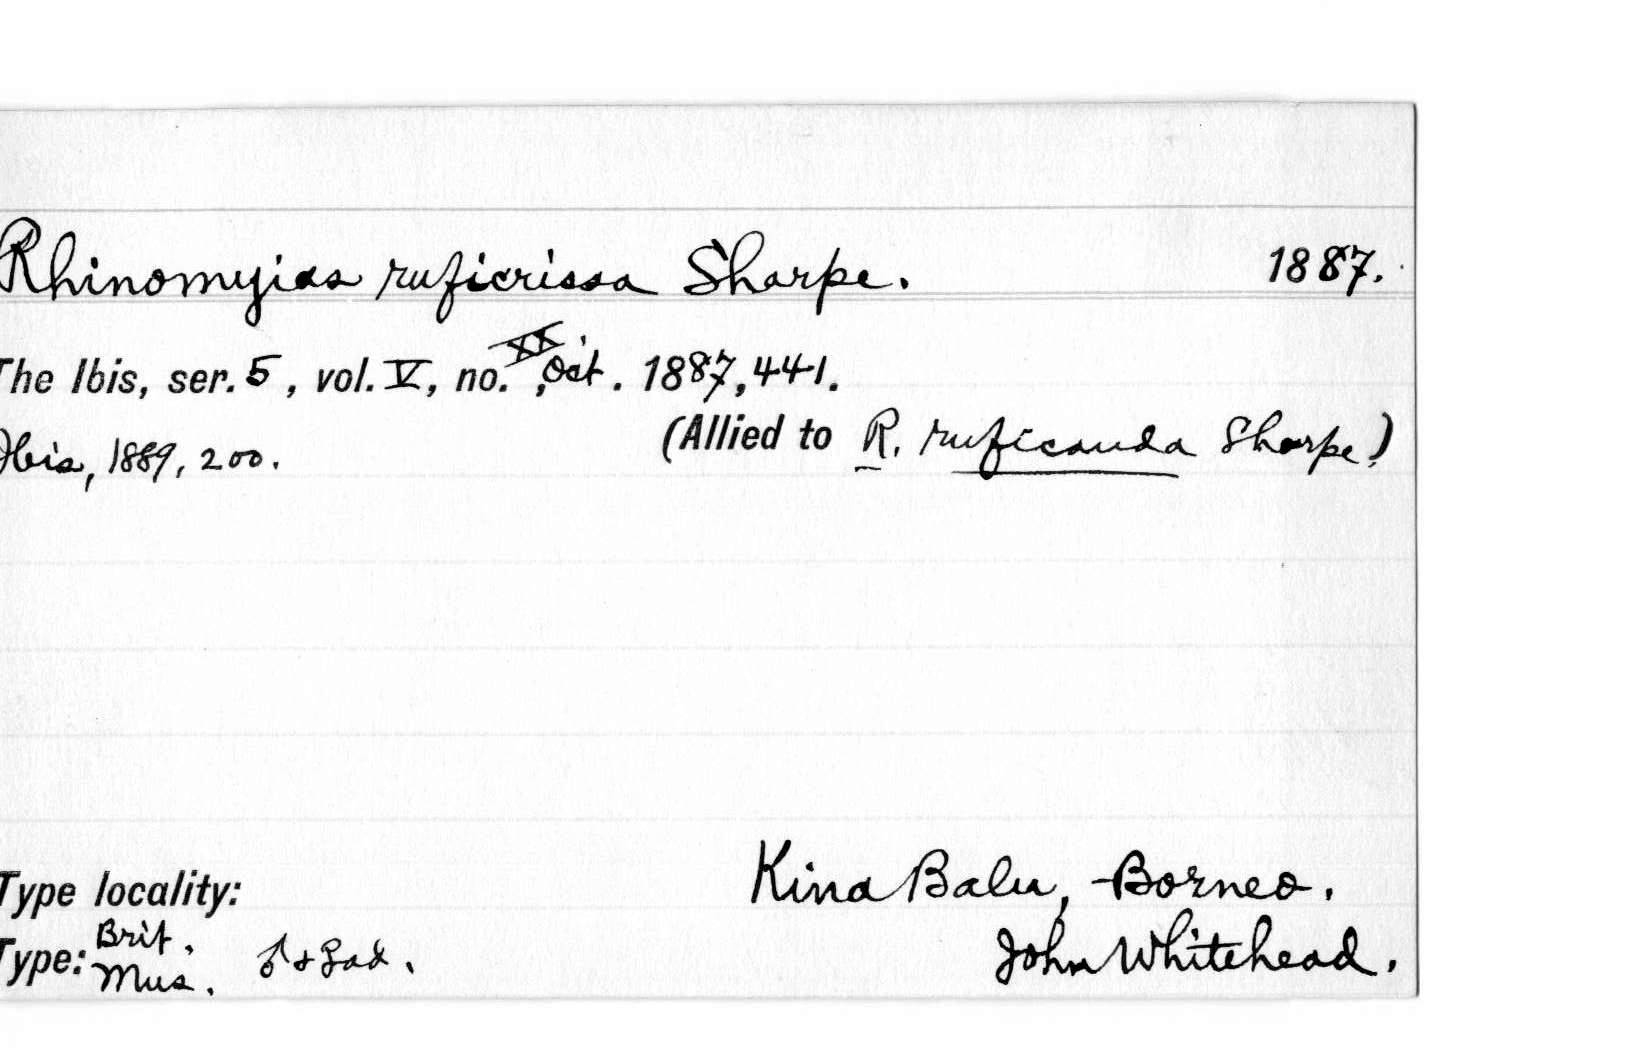 Rhinomyias ruficrissa Sharpe. 1887.
The Ibis, ser. 5, vol. V, no. XX, Oct. 1887, 441.
(Allied to R. ruficauda Sharpe)
Ibis, 1889, 200.
Type locality: Kina Balu, Borneo.
Type: Brit. Mus. ♂ + ♀ ad. John Whitehead.